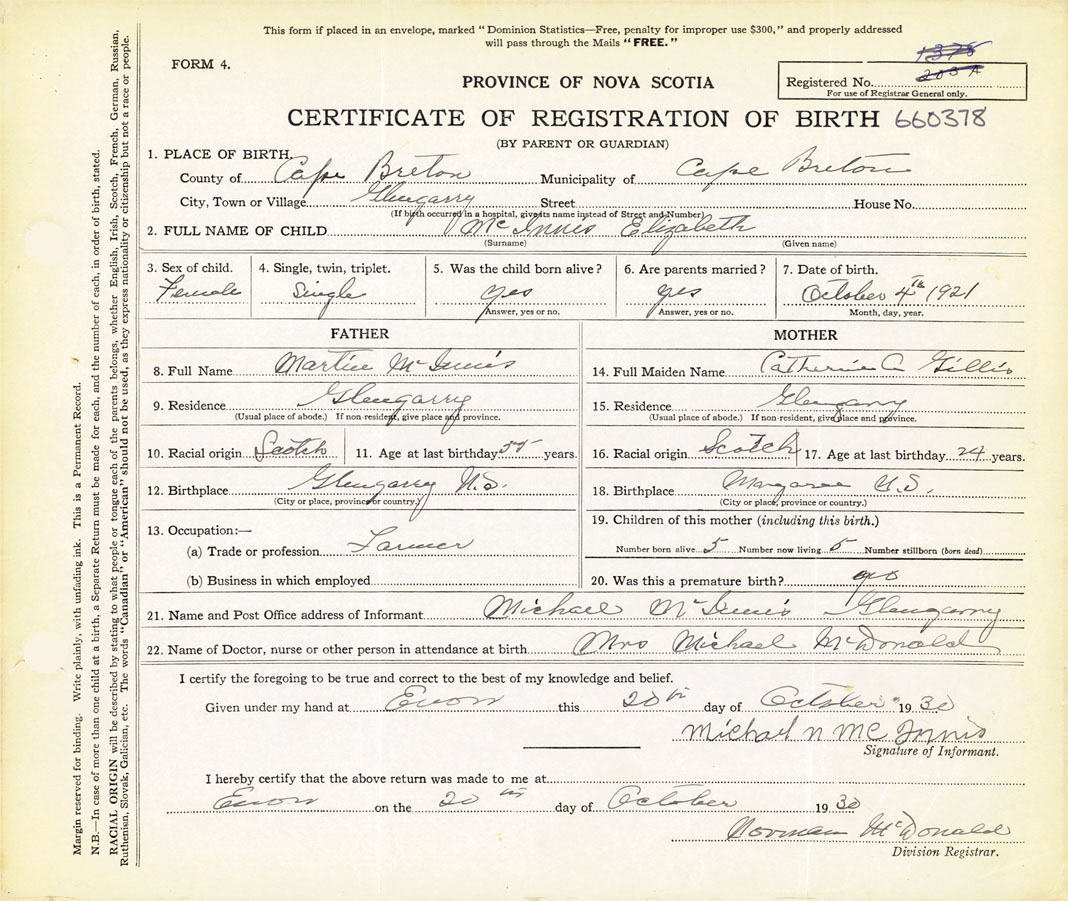 This form if placed in an envelope, marked "Dominion Statistics—Free, penalty for improper use $300," and properly addressed
will pass through the Mails "FREE."
FORM 4.
1378
203 A
PROVINCE OF NOVA SCOTIA
Registered No.
For use of Registrar General only.
CERTIFICATE OF REGISTRATION OF BIRTH 660378
(BY PARENT OR GUARDIAN)
1. PLACE OF BIRTH.
County of Cape Breton Municipality of Cape Breton
City, Town or Village Glengarry Street House No.
(If birth occurred in a hospital, give its name instead of Street and Number)
2. FULL NAME OF CHILD McInnis Elizabeth
(Surname) (Given name)
3. Sex of child. 4. Single, twin, triplet. 5. Was the child born alive? 6. Are parents married? 7. Date of birth.
Female Single yes yes October 4th 1921
Answer, yes or no. Answer, yes or no. Month, day, year.
FATHER MOTHER
8. Full Name Martin McInnis 14. Full Maiden Name Catherine A Gillis
9. Residence Glengarry 15. Residence Glengarry
(Usual place of abode.) If non-resident, give place and province. (Usual place of abode.) If non-resident, give place and province.
10. Racial origin Scotch 11. Age at last birthday 55 years. 16. Racial origin Scotch 17. Age at last birthday 24 years.
12. Birthplace Glengarry N.S. 18. Birthplace Margaree N.S.
(City or place, province or country.) (City or place, province or country.)
13. Occupation:— 19. Children of this mother (including this birth.)
(a) Trade or profession Farmer Number born alive 5 Number now living 5 Number stillborn (born dead)
(b) Business in which employed 20. Was this a premature birth?
21. Name and Post Office address of Informant Michael McInnis Glengarry
22. Name of Doctor, nurse or other person in attendance at birth Mrs Michael McDonald
I certify the foregoing to be true and correct to the best of my knowledge and belief.
Given under my hand at Enon this 20th day of October 1930
Michael N McInnis
Signature of Informant.
I hereby certify that the above return was made to me at
Enon on the 20th day of October 1930
Norman McDonald
Division Registrar.
Margin reserved for binding. Write plainly, with unfading ink. This is a Permanent Record.
N.B.—In case of more than one child at a birth, a Separate Return must be made for each, and the number of each, in order of birth, stated.
RACIAL ORIGIN will be described by stating to what people or tongue each of the parents belongs, whether English, Irish, Scotch, French, German, Russian,
Ruthenian, Slovak, Galician, etc. The words "Canadian" or "American" should not be used, as they express nationality or citizenship but not a race or people.